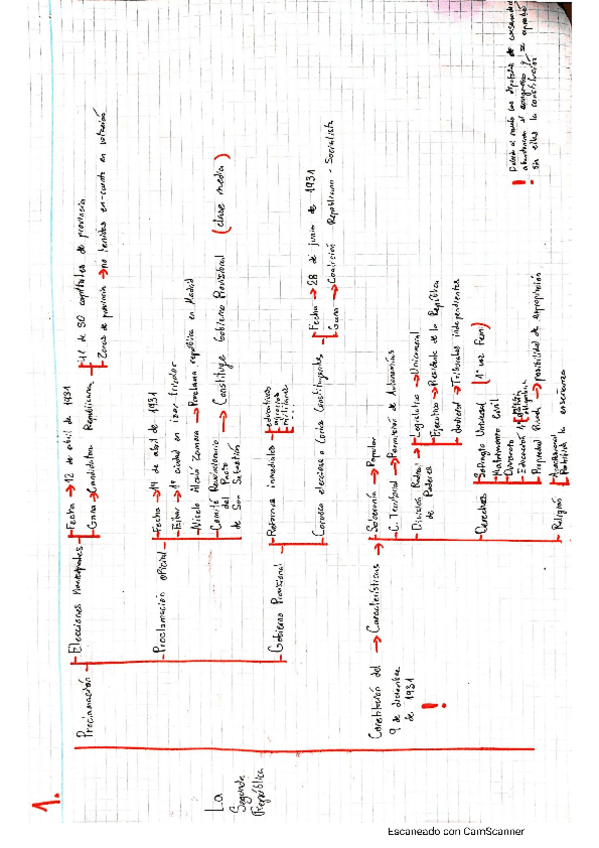 1.
La
Segunda
República
Proclamación
Elecciones Municipales
Fecha → 12 de abril de 1931
Gana → Candidatura Republicana
41 de 50 capitales de provincia
Zonas de provincia → no tenidas en cuenta en votación
Proclamación oficial
Fecha → 14 de abril de 1931
Eibar → 1ª ciudad en izar tricolor
Niceto Alcalá Zamora → Proclama república en Madrid
Comité Revolucionario
del Pacto
de San Sebastián
→ Constituye Gobierno Provisional (clase media)
Gobierno Provisional
Reformas inmediatas
educativas
agrarias
militares
Convoca elecciones a Cortes Constituyentes
Fecha → 28 de junio de 1931
Gana → Coalición Republicano - Socialista
Constitución del
9 de diciembre
de 1931
!
→ Características
Soberanía → Popular
C. Territorial → Formación de Autonomías
División Radical
de Poderes
Legislativo → Unicameral
Ejecutivo → Presidente de la República
Judicial → Tribunales independientes
Derechos
Sufragio Universal (1ª vez Fem)
Matrimonio Civil
Divorcio
Educación
Propiedad Privada → posibilidad de expropiación
Religión
Aconfesional
la enseñanza
! Debido al voto los diputados de
abandonan el congreso y se aprobó
sin ellos la constitución
Escaneado con CamScanner